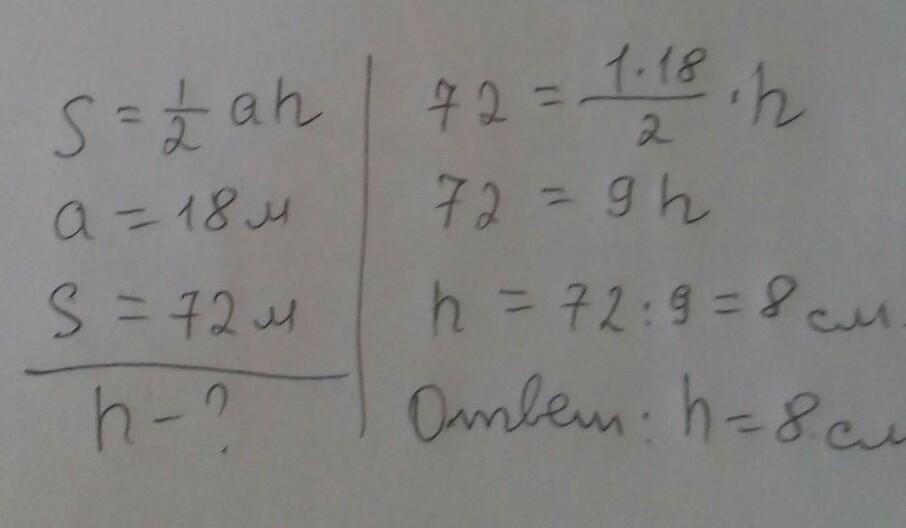 S = 1/2 ah
a = 18 м
S = 72 м
h - ?
72 = 1·18/2 · h
72 = 9h
h = 72 : 9 = 8 см.
Ответ: h = 8 см